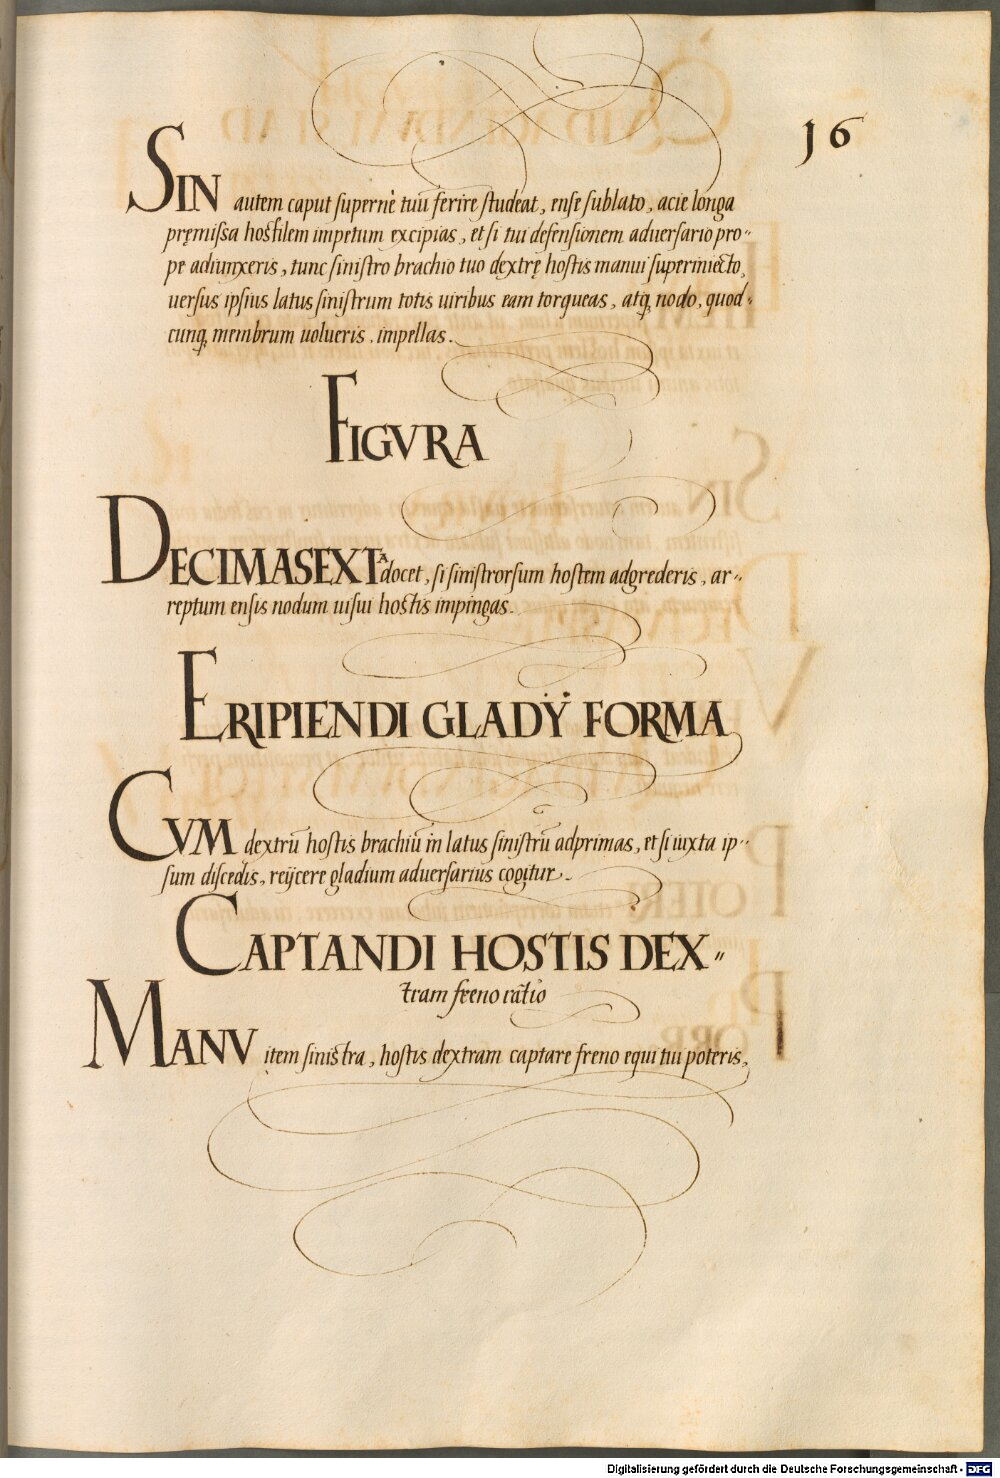 16
SIN autem caput supernè tuū ferire studeat, ense sublato, acie longa
pręmissa hostilem impetum excipias, et si tui defensionem aduersario pro-
pe adiunxeris, tunc sinistro brachio tuo dextrę hostis manui superiniecto,
uersus ipsius latus sinistrum totis uiribus eam torqueas, atq; nodo, quod-
cunq; membrum uolueris, impellas.
FIGVRA
DECIMASEXTA docet, si sinistrorsum hostem adgrederis, ar-
reptum ensis nodum uisui hostis impingas.
ERIPIENDI GLADŸ FORMA
CVM dextrū hostis brachiū in latus sinistrū adprimas, et si iuxta ip-
sum discedis, reÿcere gladium aduersarius cogitur.
CAPTANDI HOSTIS DEX-
tram freno ratio
MANV item sinistra, hostis dextram captare freno equi tui poteris,
Digitalisierung gefördert durch die Deutsche Forschungsgemeinschaft - DFG